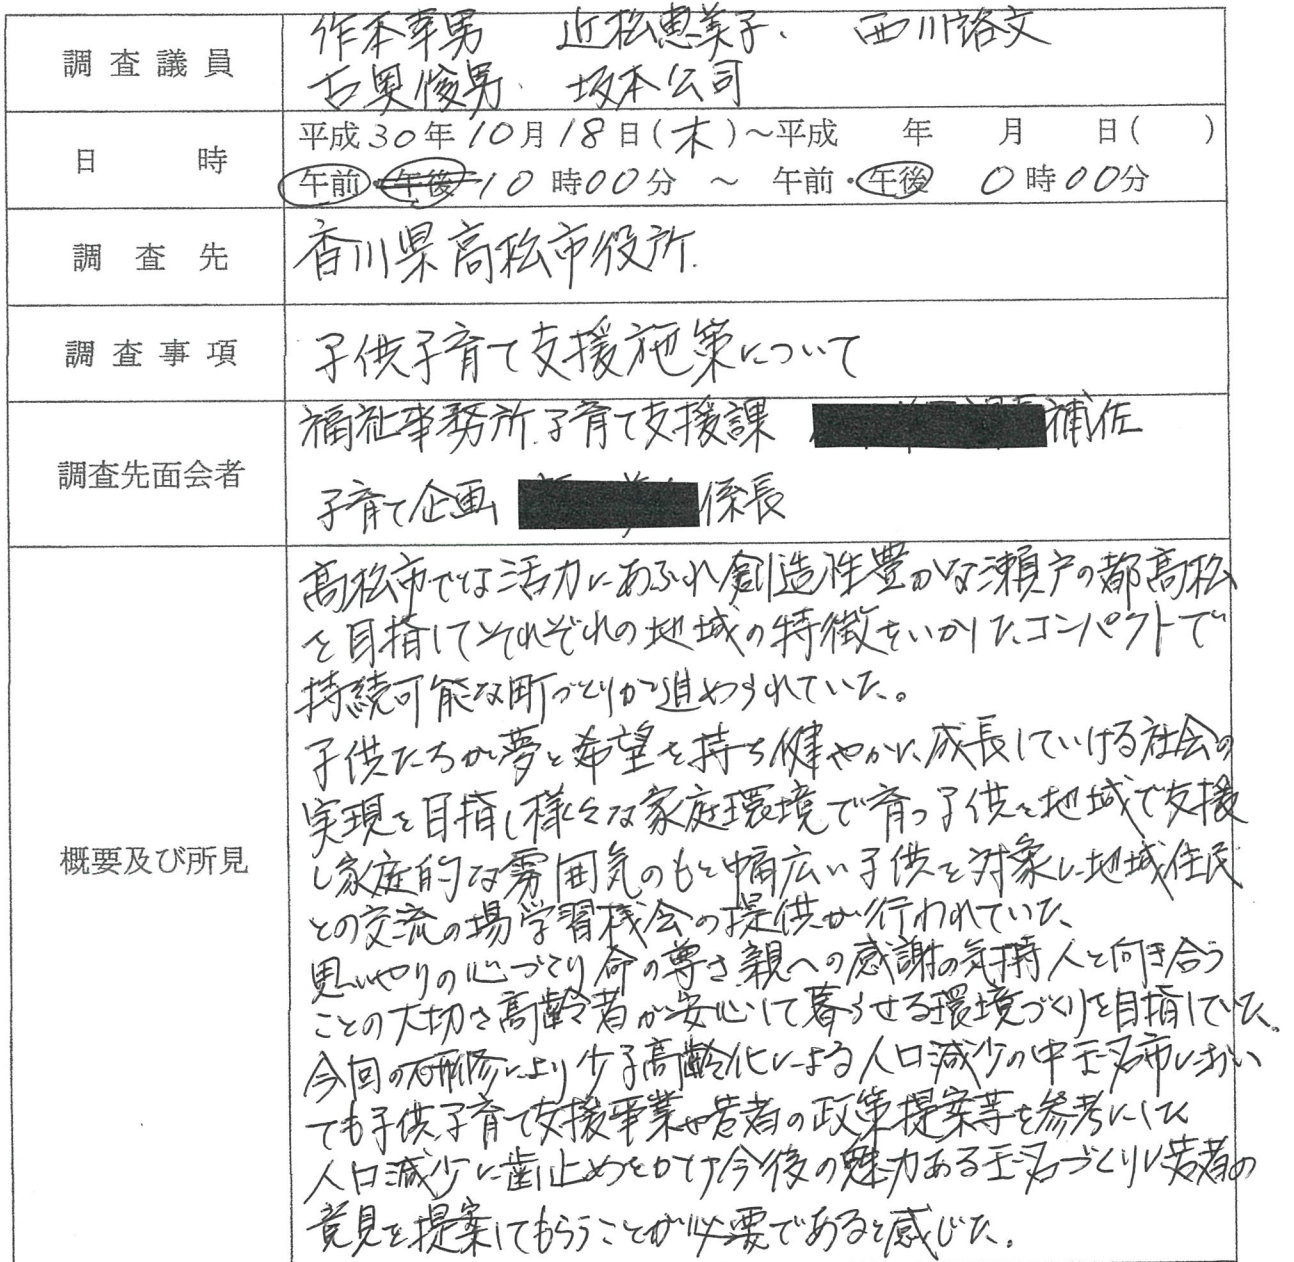 調査議員
作本幸男 近松恵美子. 西川裕文
古奥俊男. 坂本公司
日時
平成30年10月18日(木)～平成 年 月 日( )
午前・午後10時00分 ～ 午前・午後 0時00分
調査先
香川県高松市役所.
調査事項
子供子育て支援施策について
調査先面会者
福祉事務所子育て支援課 補佐
子育て企画 係長
概要及び所見
高松市では活力にあふれ創造性豊かな瀬戸の都高松
を目指してそれぞれの地域の特徴をいかしたコンパクトで
持続可能な町づくりが進められていた。
子供たちが夢と希望を持ち健やかに成長していける社会の
実現を目指し様々な家庭環境で育つ子供を地域で支援
し家庭的な雰囲気のもと幅広い子供を対象に地域住民
との交流の場学習機会の提供が行われていた
思いやりの心づくり命の尊さ親への感謝の気持人と向き合う
ことの大切さ高齢者が安心して暮らせる環境づくりを目指していた。
今回の研修により少子高齢化による人口減少の中玉名市におい
ても子供子育て支援事業や若者の政策提案等を参考にして
人口減少に歯止めをかけ今後の魅力ある玉名づくりに若者の
意見を提案してもらうことが必要であると感じた。